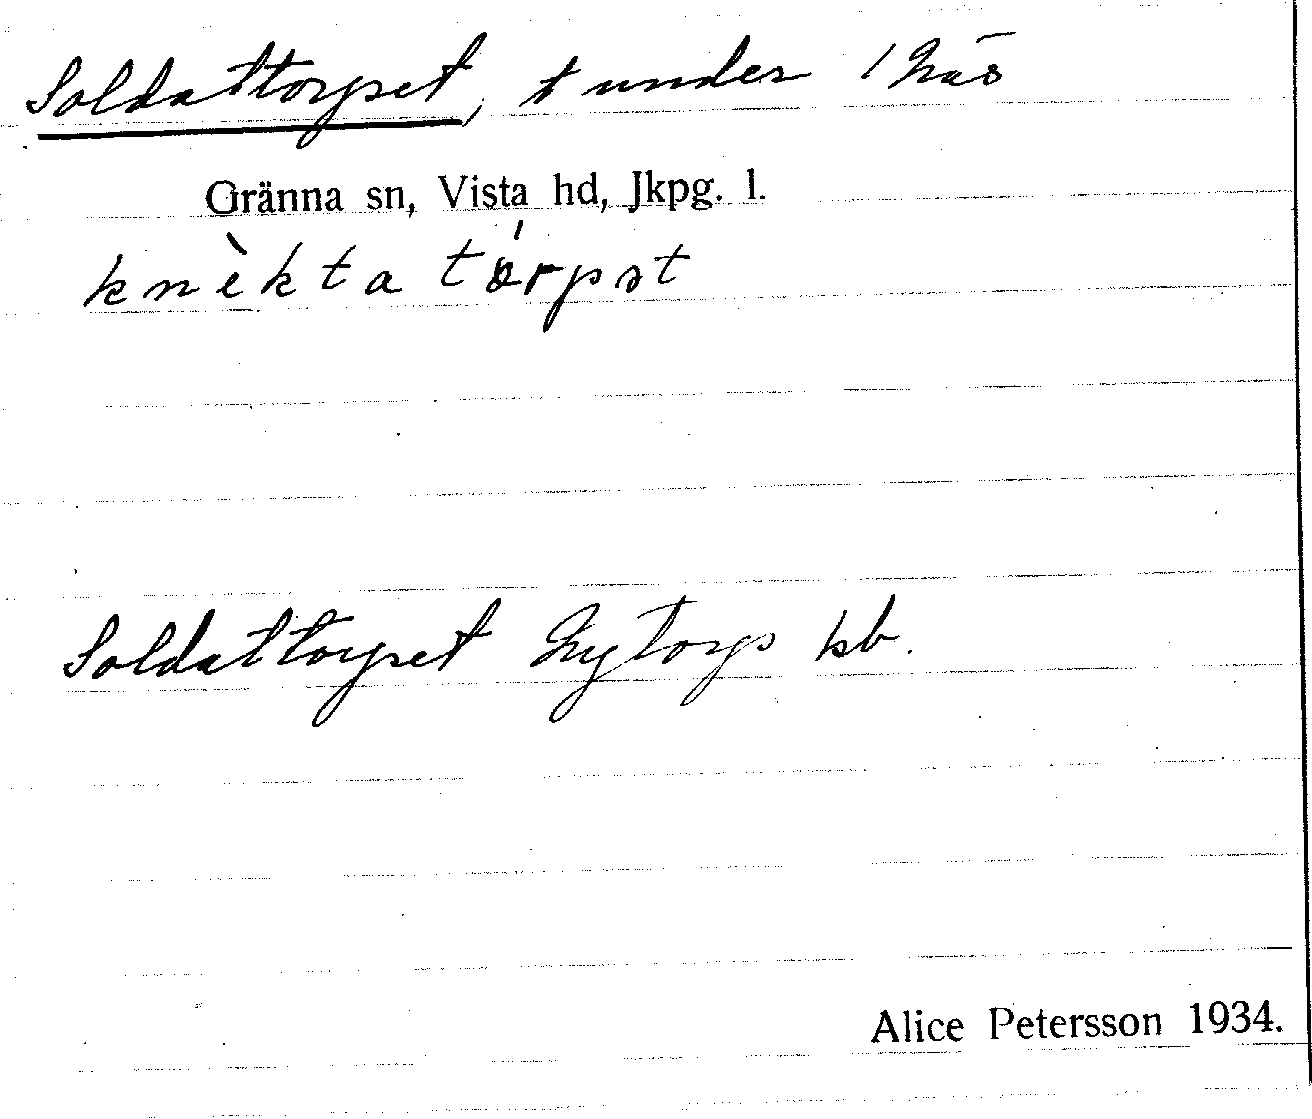 Soldattorpet, t under 1 Näs
Gränna sn, Vista hd, Jkpg. l.
knὲkta tórpət
Soldattorpet Nytorps kb.
Alice Petersson 1934.